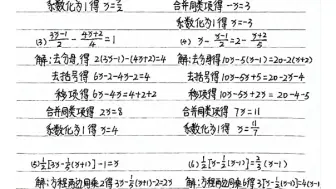 系数化为1得 y=½ 合并同类项得 -y=3
系数化为1得 y=-3
(3) (3y-1)/2 - (4y+2)/4 = 1 (4) y - (y-1)/2 = 2 - (y+2)/5
解:去分母,得 2(3y-1)-(4y+2)=4 解:去分母得 10y-5(y-1)=20-2(y+2)
去括号得 6y-2-4y-2=4 去括号得 10y-5y+5=20-2y-4
移项得 6y-4y=4+2+2 移项得 10y-5y+2y=20-4-5
合并同类项得 2y=8 合并同类项得 7y=11
系数化为1得 y=4 系数化为1得 y=11/7
(5) ½[3y-½(y+1)]-1=y (6) ½[y-½(y-1)]=⅔(y-1)
解:方程两边同乘2得 3y-½(y+1)-2=2y